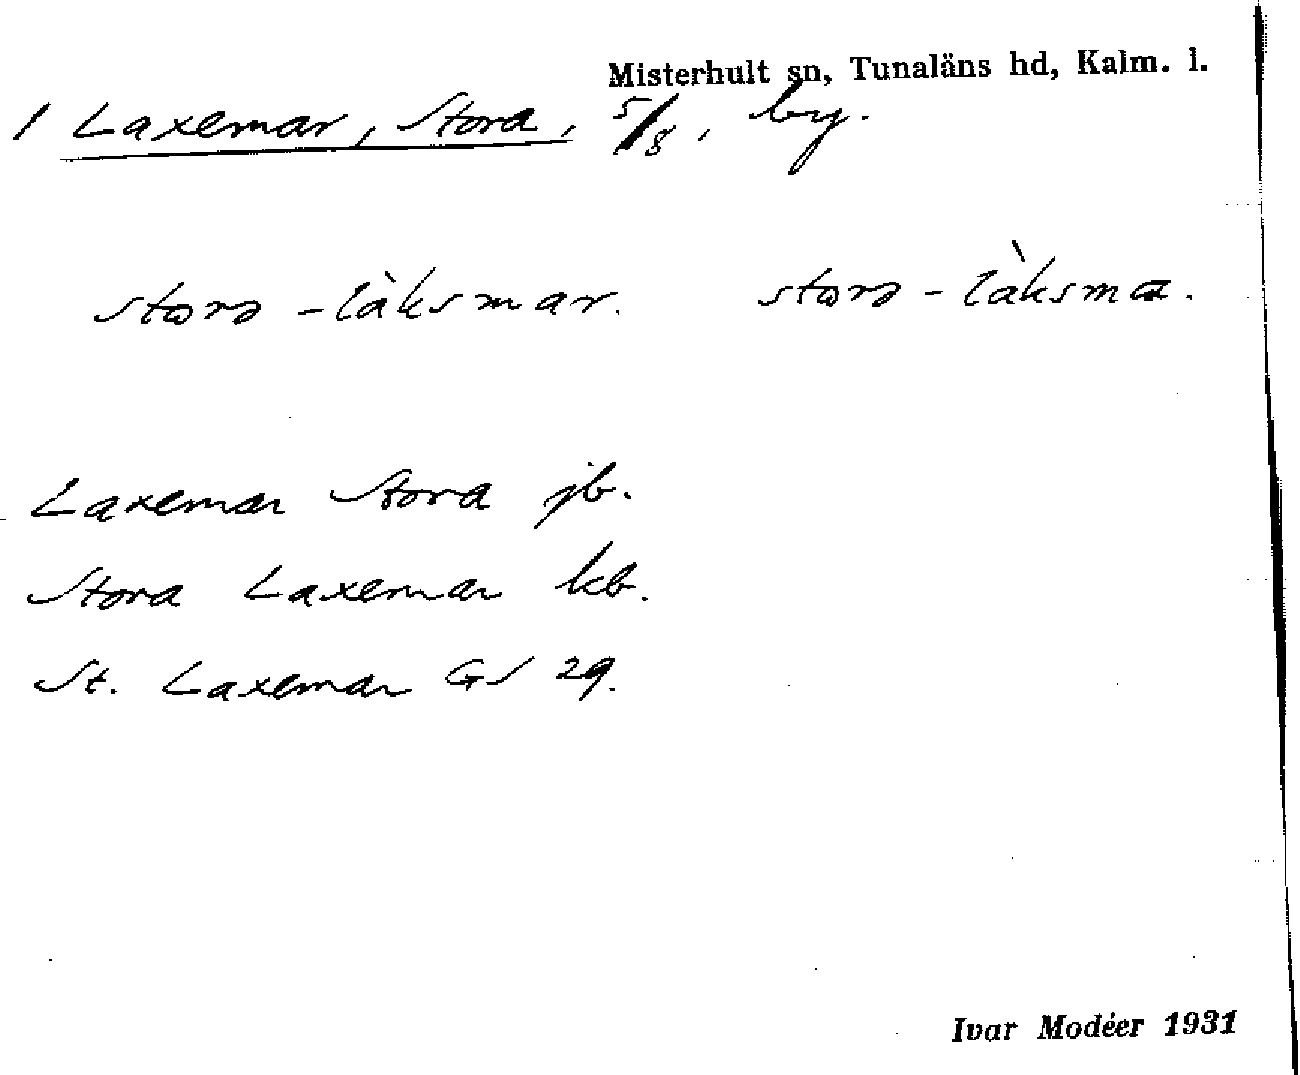 Misterhult sn, Tunaläns hd, Kalm. l.
/ Laxemar, Stora, 5/8, by.
storə -làksmar. storə -làksma.
Laxemar Stora jb.
Stora Laxemar kb.
St. Laxemar GS 29.
Ivar Modéer 1931